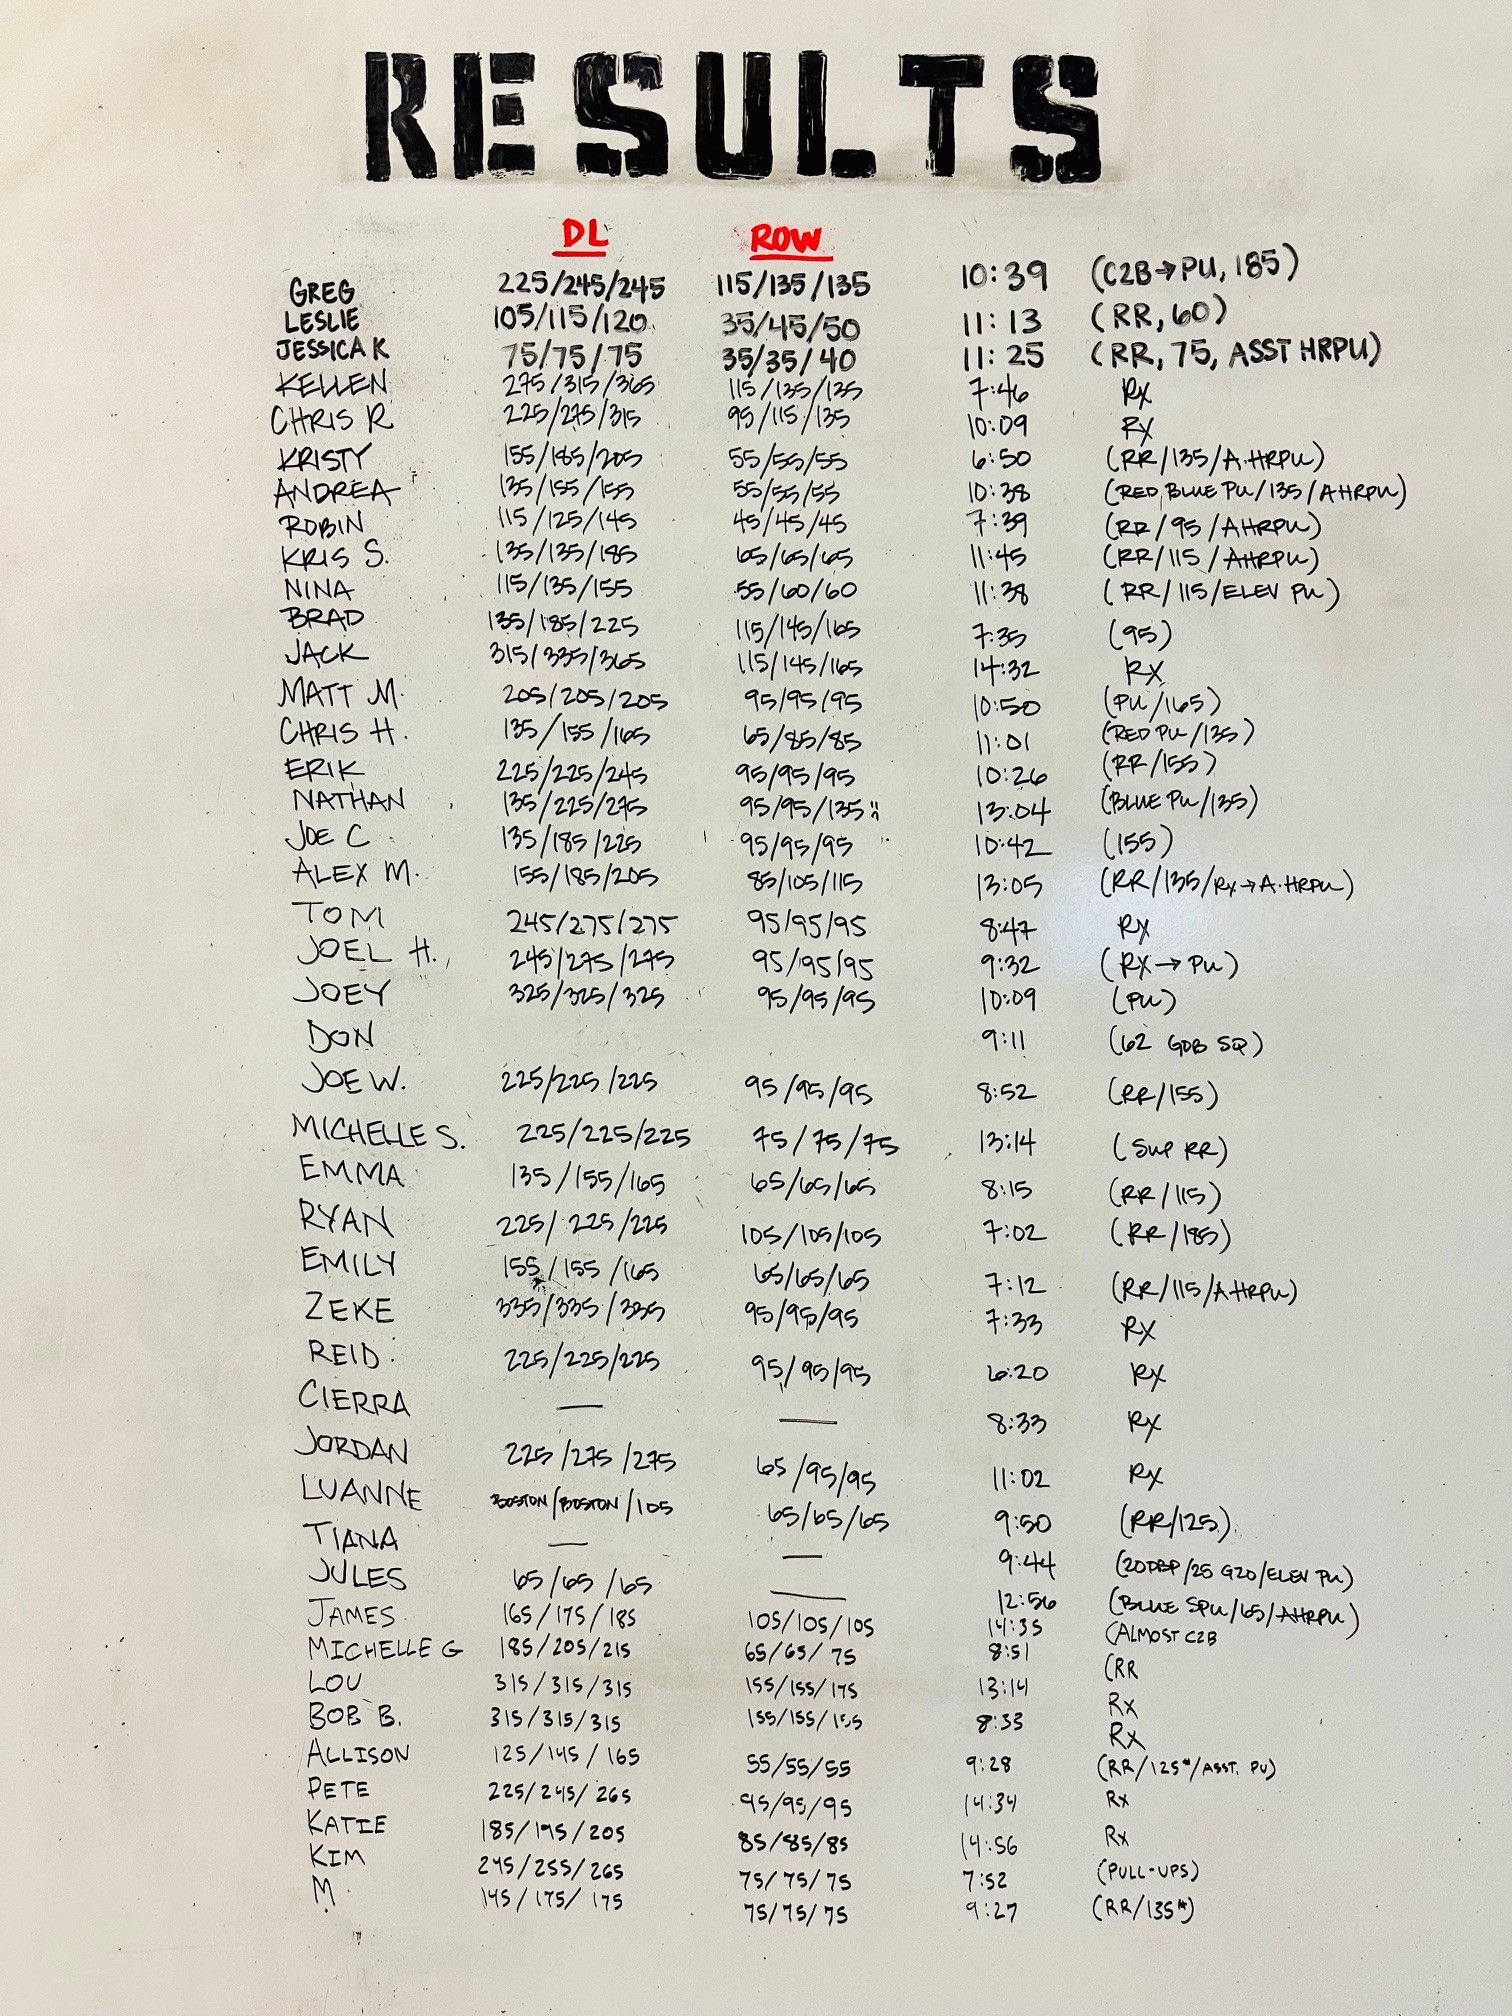 RESULTS
DL ROW
GREG 225/245/245 115/135/135 10:39 (C2B→PU, 185)
LESLIE 105/115/120 35/45/50 11:13 (RR, 60)
JESSICA K 75/75/75 35/35/40 11:25 (RR, 75, ASST HRPU)
KELLEN 275/315/365 115/135/135 7:46 RX
CHRIS R 225/275/315 95/115/135 10:09 RX
KRISTY 155/185/205 55/55/55 6:50 (RR/135/A.HRPU)
ANDREA 135/155/155 55/55/55 10:38 (RED, BLUE PU/135/AHRPU)
ROBIN 115/125/145 45/45/45 7:39 (RR/95/AHRPU)
KRIS S. 135/135/185 65/65/65 11:45 (RR/115/AHRPU)
NINA 115/135/155 55/60/60 11:38 (RR/115/ELEV PU)
BRAD 135/185/225 115/145/165 7:35 (95)
JACK 315/335/365 115/145/165 14:32 RX
MATT M. 205/205/205 95/95/95 10:50 (PU/165)
CHRIS H. 135/155/165 65/85/85 11:01 (RED PU/135)
ERIK 225/225/245 95/95/95 10:26 (RR/155)
NATHAN 135/225/275 95/95/135 13:04 (BLUE PU/135)
JOE C 135/185/225 95/95/95 10:42 (155)
ALEX M. 155/185/205 85/105/115 13:05 (RR/135/RX→A.HRPU)
TOM 245/275/275 95/95/95 8:47 RX
JOEL H. 245/275/275 95/95/95 9:32 (RX→PU)
JOEY 325/325/325 95/95/95 10:09 (PU)
DON 9:11 (62 GDB SQ)
JOE W. 225/225/225 95/95/95 8:52 (RR/155)
MICHELLE S. 225/225/225 75/75/75 13:14 (SUP RR)
EMMA 135/155/165 65/65/65 8:15 (RR/115)
RYAN 225/225/225 105/105/105 7:02 (RR/185)
EMILY 155/155/165 65/65/65 7:12 (RR/115/AHRPU)
ZEKE 335/335/335 95/95/95 7:33 RX
REID 225/225/225 95/95/95 6:20 RX
CIERRA — — 8:33 RX
JORDAN 225/275/275 65/95/95 11:02 RX
LUANNE BOSTON/BOSTON/105 65/65/65 9:50 (RR/125)
TIANA — — 9:44 (20DBP/25 G2O/ELEV PU)
JULES 65/65/65 — 12:56 (BLUE SPU/65/AHRPU)
JAMES 165/175/185 105/105/105 14:35 (ALMOST C2B
MICHELLE G 185/205/215 65/65/75 8:51 (RR
LOU 315/315/315 155/155/175 13:14 RX
BOB B. 315/315/315 155/155/155 8:33 RX
ALLISON 125/145/165 55/55/55 9:28 (RR/125#/ASST. PU)
PETE 225/245/265 95/95/95 14:34 RX
KATIE 185/195/205 85/85/85 14:56 RX
KIM 245/255/265 75/75/75 7:52 (PULL-UPS)
M 145/175/175 75/75/75 9:27 (RR/135#)